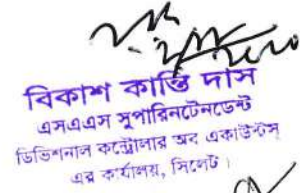 বিকাশ কান্তি দাস
এসএএস সুপারিনটেনডেন্ট
ডিভিশনাল কন্ট্রোলার অব একাউন্টস্
এর কার্যালয়, সিলেট।